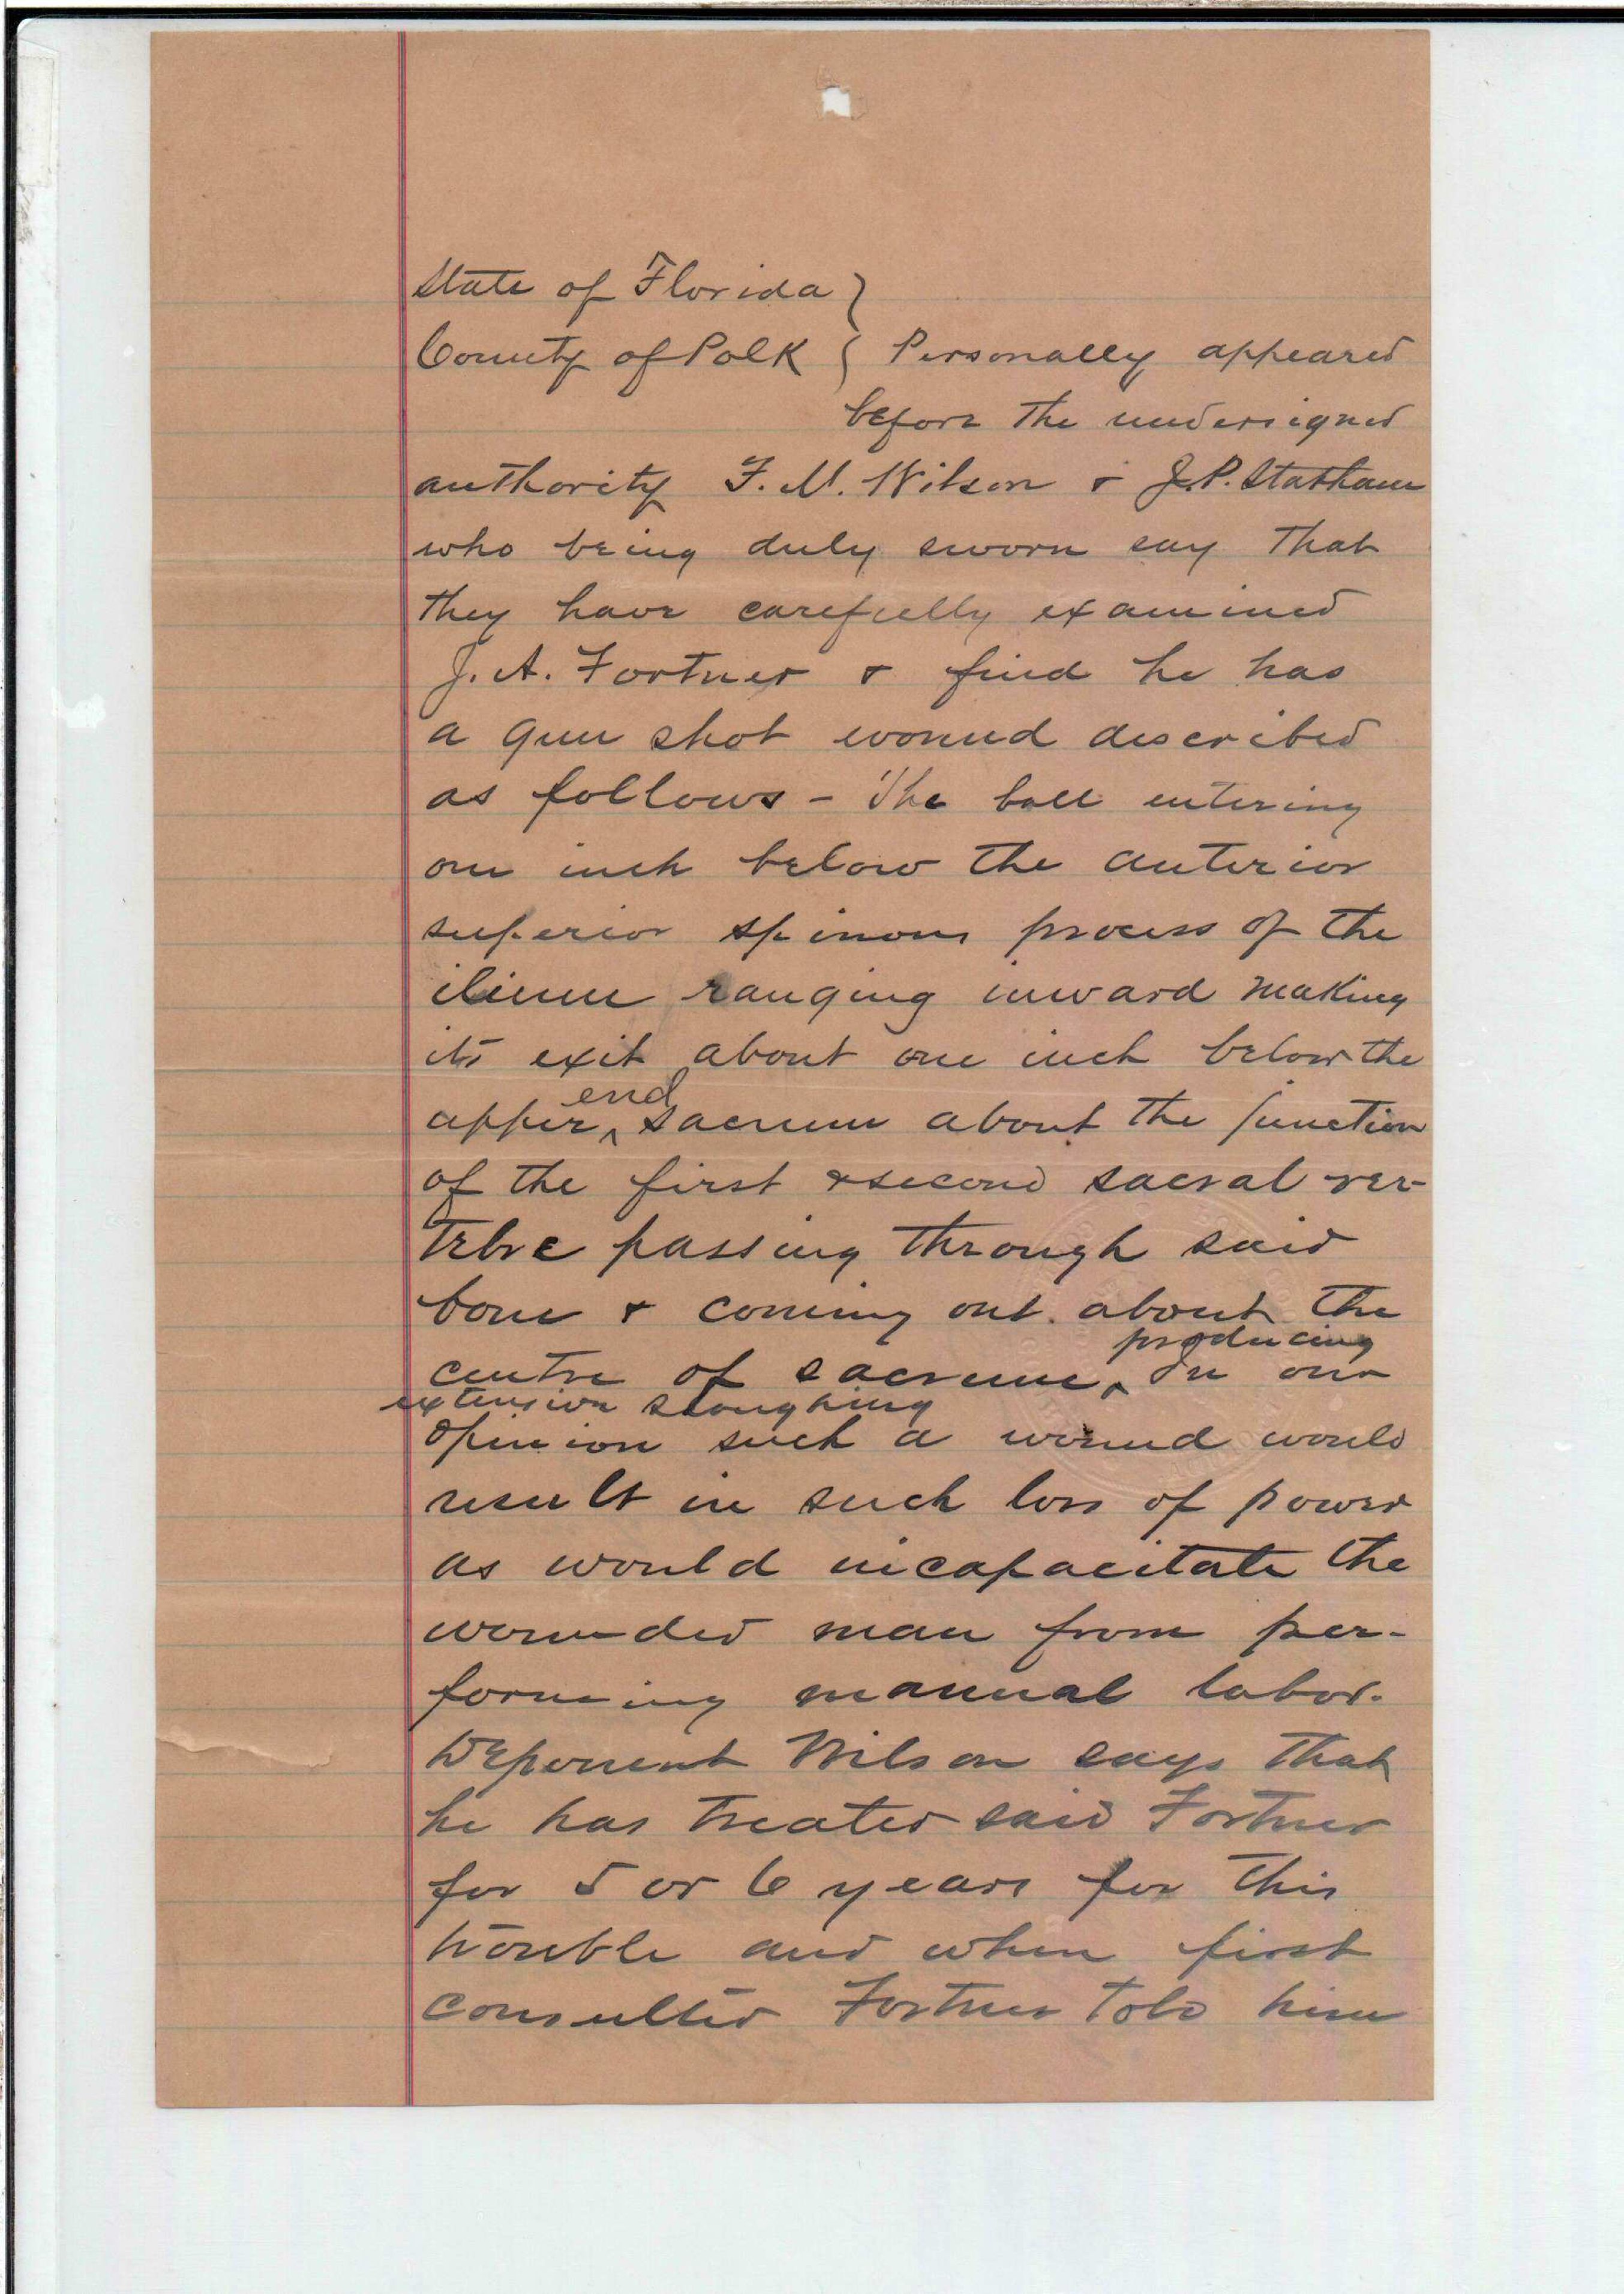 State of Florida }
County of Polk { Personally appeared
before the undersigned
authority F. M. Wilson & J. P. Statham
who being duly sworn say that
they have carefully examined
J. A. Fortner & find he has
a gun shot wound described
as follows - The ball entering
one inch below the anterior
superior spinous process of the
ilium ranging inward making
its exit about one inch below the
end
upper ^ sacrum about the junction
of the first & second sacral ver-
tebre passing through said
bone & coming out about the
producing
centre of sacrum ^ In our
extensive sloughing
opinion such a wound would
result in such loss of power
as would incapacitate the
wounded man from per-
forming manual labor.
Deponent Wilson says that
he has treated said Fortner
for 5 or 6 years for this
trouble and when first
consulted Fortner told him